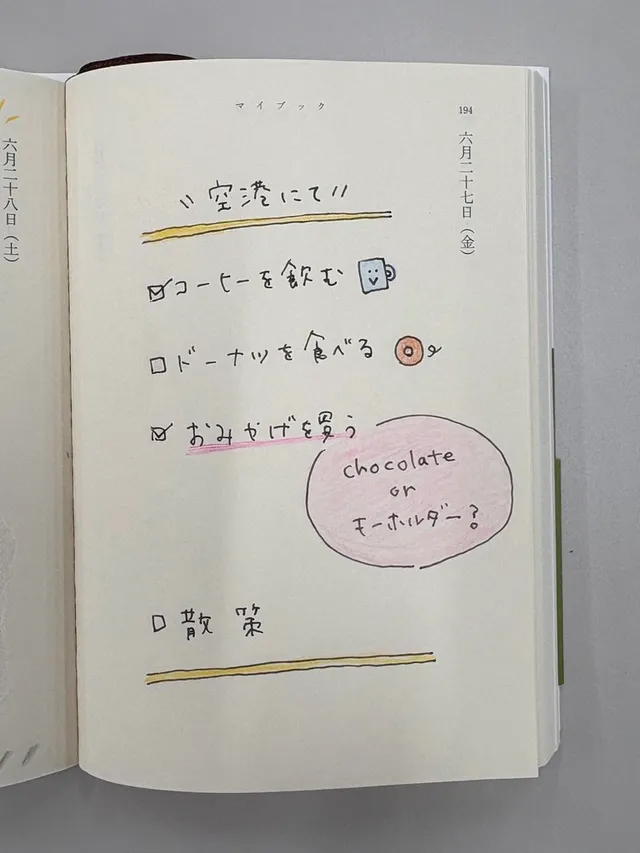 マイブック
194
六月二十七日（金）
〃空港にて〃
☑コーヒーを飲む
☐ドーナツを食べる
☑おみやげを買う
chocolate
or
キーホルダー？
☐散策
六月二十八日（土）